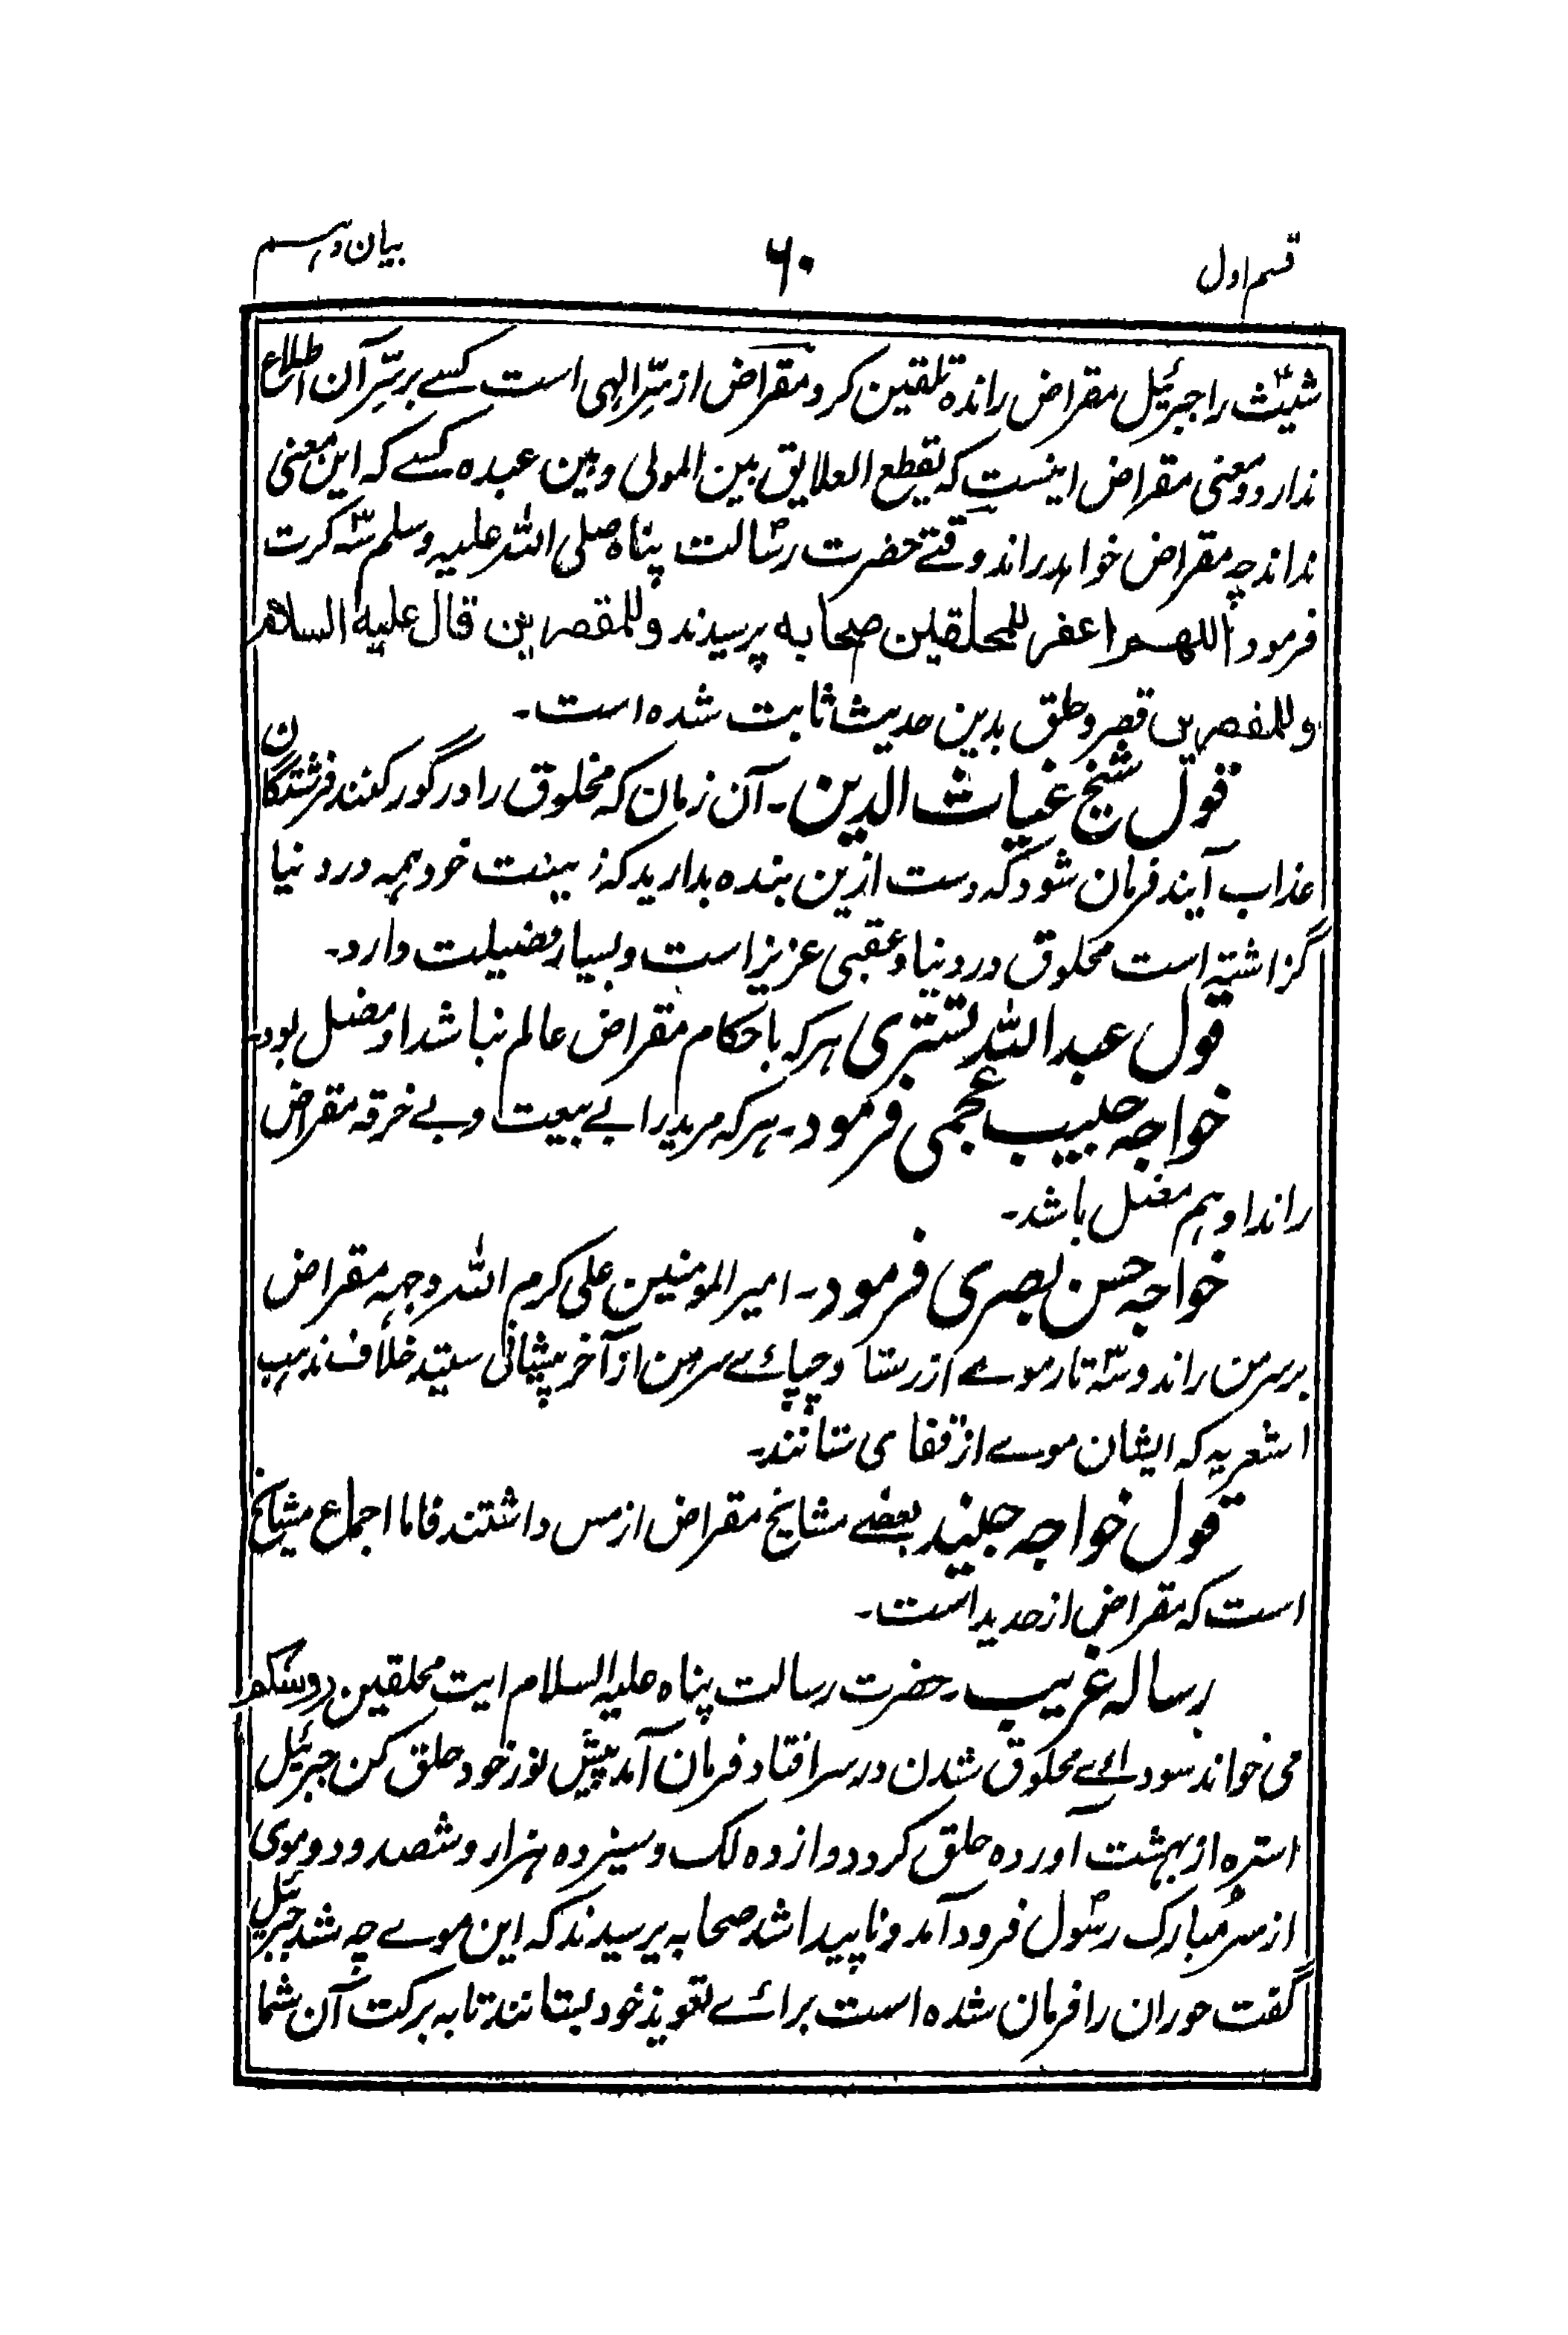 قسم اول
۶۰
بیان دہم
شیثؑ را جبرئیل مقراض راندہ تلقین کرد مقراض از سرّ الٰہی است کسے بر سرِّ آن اطلاع
ندارد و معنی مقراض اینست کہ یقطع العلایق بین المولی و بین عبدہ کسے کہ این معنی
نداند چہ مقراض خواہد راند وقتے حضرت رسالت پناہ صلی اللہ علیہ وسلم سہ کرت
فرمود اللھم اغفر للمحلقین صحابہ پرسیدند وللمقصرین قال علیہ السلام
وللمقصرین قصر و حلق بدین حدیث ثابت شدہ است۔
قول شیخ غیاث الدین۔ آن زمان کہ محلوق را در گور کنند فرشتگان
عذاب آیند فرمان شود کہ دست ازین بندہ بدارید کہ زینت خود ہمہ در دنیا
گزاشتہ است محلوق در دنیا و عقبی عزیز است و بسیار فضیلت دارد۔
قول عبد اللہ تستری ہر کہ باحکام مقراض عالم نباشد او مضل بود۔
خواجہ حبیب عجمی فرمود۔ ہر کہ مرید را بے بیعت و بے خرقہ مقراض
راند او ہم مضل باشد۔
خواجہ حسن بصری فرمود۔ امیر المومنین علی کرم اللہ وجہہ مقراض
بر سر من راند و سہ تار موے از رستا و چپاے سر من از آخر پیشانی ستید خلاف مذہب
اشعریہ کہ ایشان موے از قفا می ستانند۔
قول خواجہ جنید بعضے مشایخ مقراض از مس داشتند فاما اجماع مشایخ
است کہ مقراض از حدید است۔
رسالہ غریب۔ حضرت رسالت پناہ علیہ السلام ایت محلقین روسکم
می خواند سوداے محلوق شدن در سر افتاد فرمان آمد پیش نور خود حلق کن جبرئیل
استرہ از بہشت آوردہ حلق کرد دوازدہ لک و سیزدہ ہزار و شصد و دو موی
از سر مبارک رسول فرود آمد و ناپیدا شد صحابہ پرسیدند کہ این موے چہ شد جبرئیل
گفت حوران را فرمان شدہ است براے تعویذ خود بستانند تا بہ برکت آن شما